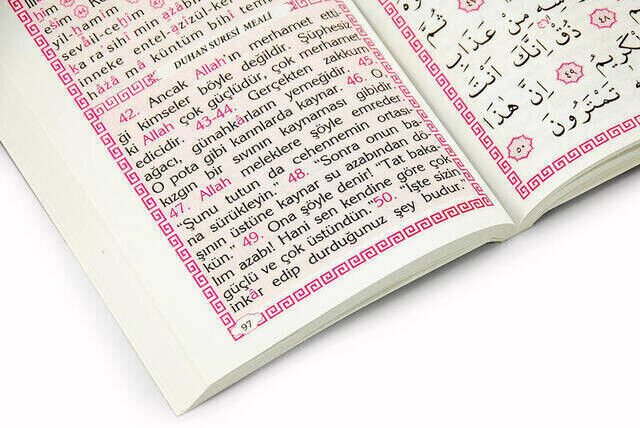 yil-hamîm
azâbi
seväil-cehîm
kara'sihî min azâb
inneke entel-azîzül-ke
hâzâ mâ küntüm bihî tem
DUHAN SURESİ MEALİ
42. Ancak Allah'ın merhamet etti
ği kimseler böyle değildir. Şüphesiz
ki Allah çok güçlüdür, çok merhamet
edicidir. 43-44. Gerçekten zakkum
ağacı, günahkâların yemeğidir. 45.
O pota gibi karınlarda kaynar. 46. O
kızgın bir sıvının kaynaması gibidir.
47. Allah meleklere şöyle emreder.
"Şunu tutun da cehennemin ortası-
na sürükleyin." 48. "Sonra onun ba-
şının üstüne kaynar su azabından dö-
kün." 49. Ona şöyle denir! "Tat baka-
lım azabı! Hani sen kendine göre çok
güçlü ve çok üstündün."50. "İşte sizin
inkâr edip durduğunuz şey budur.
97
مِنْ عَذَابِ
ثُمَّ
٤٨
ذُقْ إِنَّكَ أَنْتَ
الْكَرِيمُ
٤٩
إِنَّ هٰذَا
تَمْتَرُونَ
٥٠